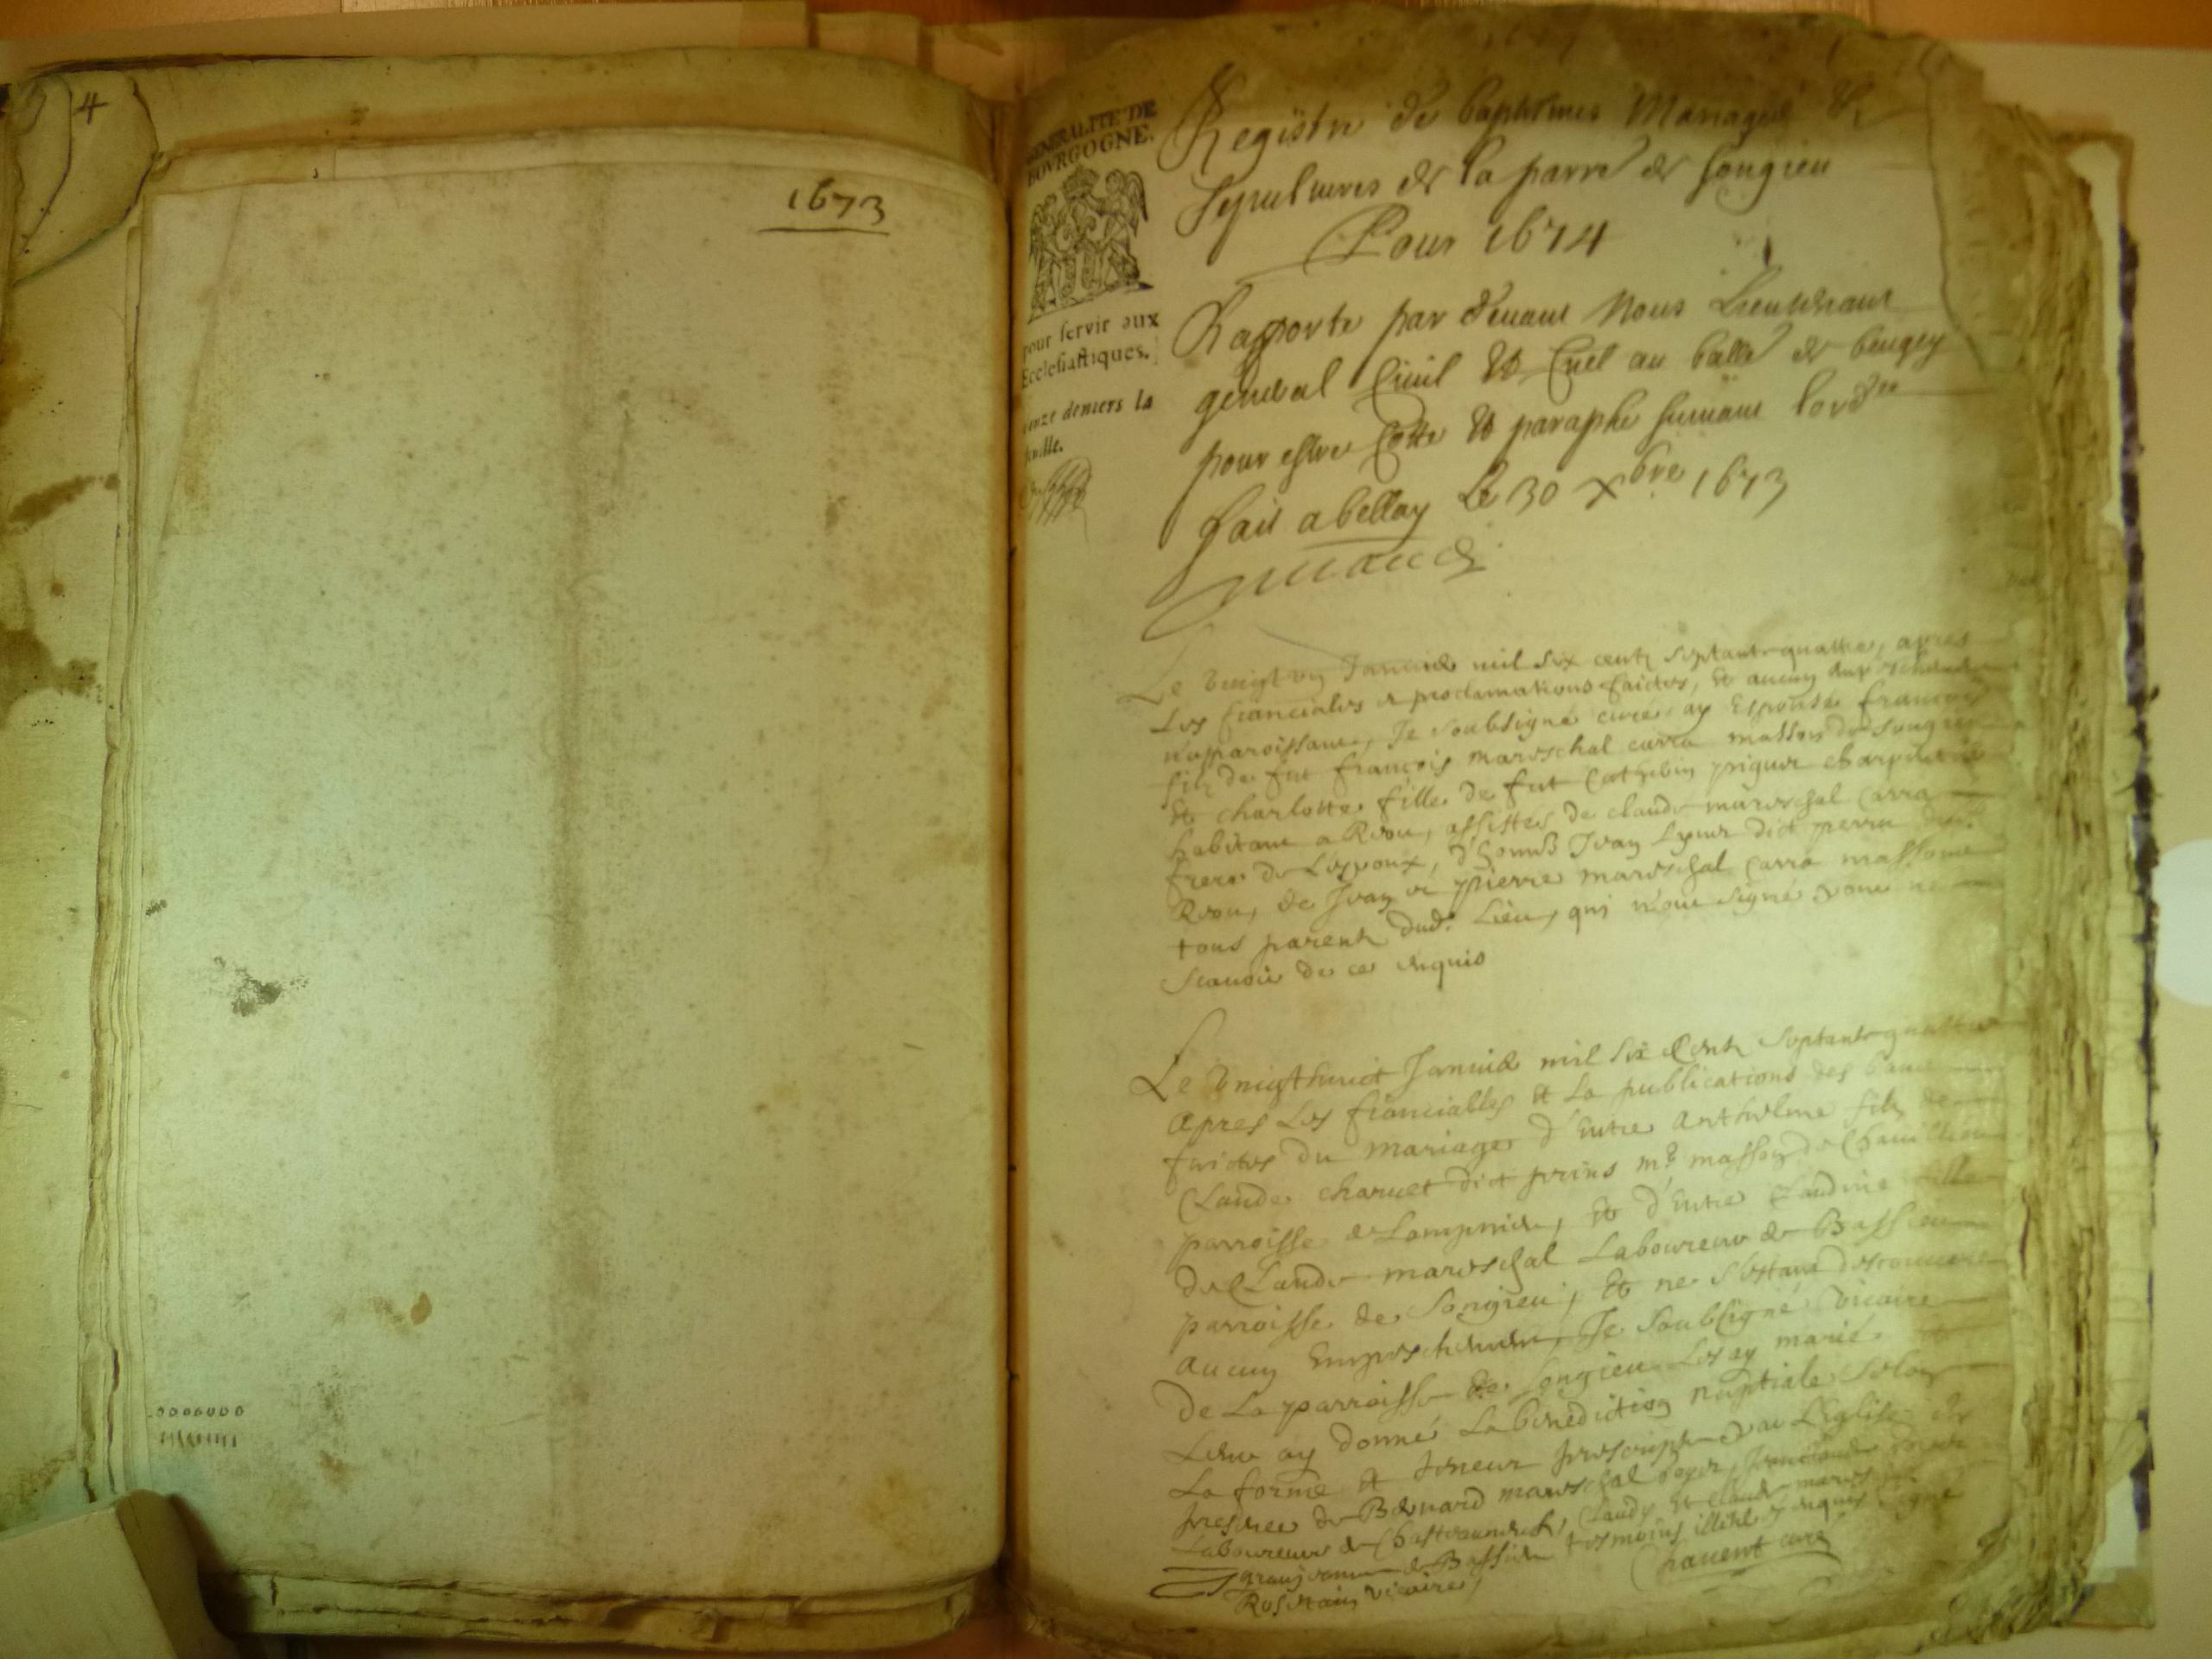 4
1673
GENERALITE DE
BOVRGOGNE.
pour servir aux
Ecclesiastiques.
onze deniers la
feuille.
Registre de baptesmes Mariages &
sepultures de la parre de songieu
Pour 1674
Raporte par devant Nous Lieutenant
general Civil Et Cruel au balle de beugey
pour estre Cotte Et paraphe suivant lordre
fait a belley Le 30 Xbre 1673
Le vingt un Janvier mil six centz septante quattre, apres
Les fiancialles & proclamations faictes, Et aucun
n'aparoissant, Je soubsigné curé ay Espousé françois
filz de fut françois mareschal carra masson de songieu
Et charlotte fille de fut Cathelin charpentier
habitant a, assistes de claude mareschal Carra
frere de Lespoux, d'honnes Jean dict perra
de Jean et pierre mareschal Carra massons
tous parentz dud. Lieu, qui n'ont signé pour ne
scavoir de ce enquis
Le vingthuict Janvier mil six Centz septante quattre
apres Les fiancialles Et La publications des bans
faictes du mariage d'entre anthelme filz de
Claude charvet dict prins me masson de
parroisse de Lompnieu, Et d'entre Claudine fille
de Claude mareschal Laboureur de Bassieu
parroisse de Songieu, Et ne s'estant descouvert
aucun Empeschement, Je soubsigné vicaire
De La parroisse de songieu Les ay marié Et
Leur ay donné La benediction nuptiale selon
La forme Et teneur prescripte par L'eglise En
presence de Bernard mareschal
Laboureur de, Claude Et Claude mares
de Bassieu tesmoins illiteres enquis signé
vicaire,
Chavent curé